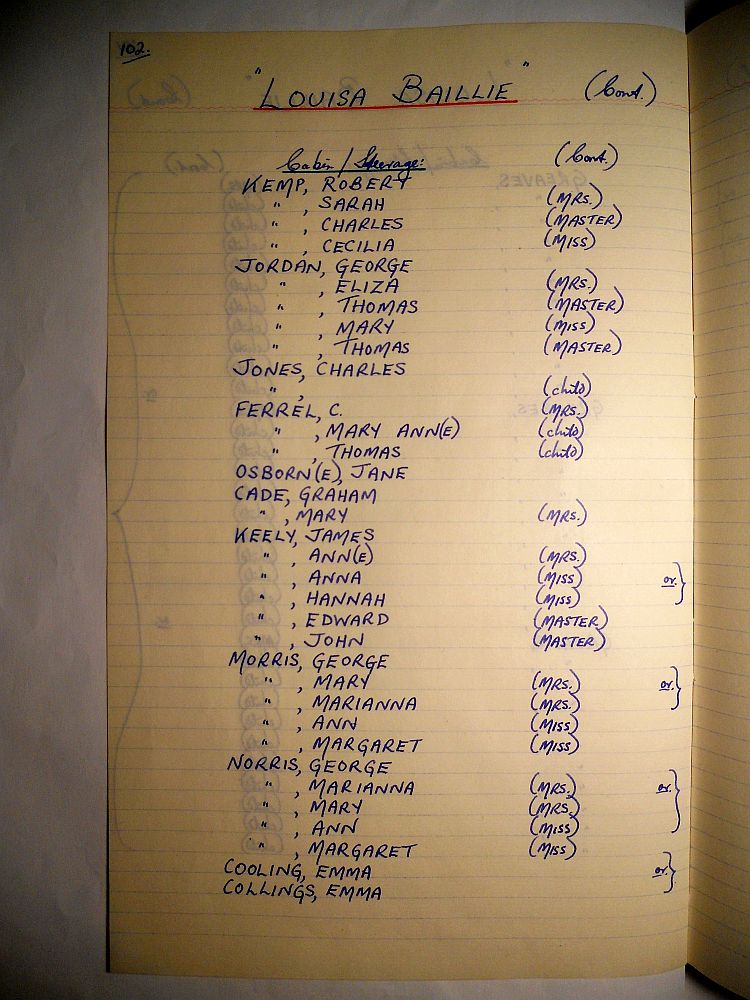 102.
"LOUISA BAILLIE" (Cont.)
Cabin/Steerage: (Cont.)
KEMP, ROBERT
" , SARAH (MRS.)
" , CHARLES (MASTER)
" , CECILIA (MISS)
JORDAN, GEORGE
" , ELIZA (MRS.)
" , THOMAS (MASTER)
" , MARY (MISS)
" , THOMAS (MASTER)
JONES, CHARLES
" , (child)
FERREL, C. (MRS.)
" , MARY ANN(E) (child)
" , THOMAS (child)
OSBORN(E), JANE
CADE, GRAHAM
" , MARY (MRS.)
KEELY, JAMES
" , ANN(E) (MRS.)
" , ANNA (MISS) or. }
" , HANNAH (MISS)
" , EDWARD (MASTER)
" , JOHN (MASTER)
MORRIS, GEORGE
" , MARY (MRS.) or. }
" , MARIANNA (MRS.)
" , ANN (MISS)
" , MARGARET (MISS)
NORRIS, GEORGE
" , MARIANNA (MRS.) or. }
" , MARY (MRS.)
" , ANN (MISS)
" , MARGARET (MISS)
COOLING, EMMA or. }
COLLINGS, EMMA